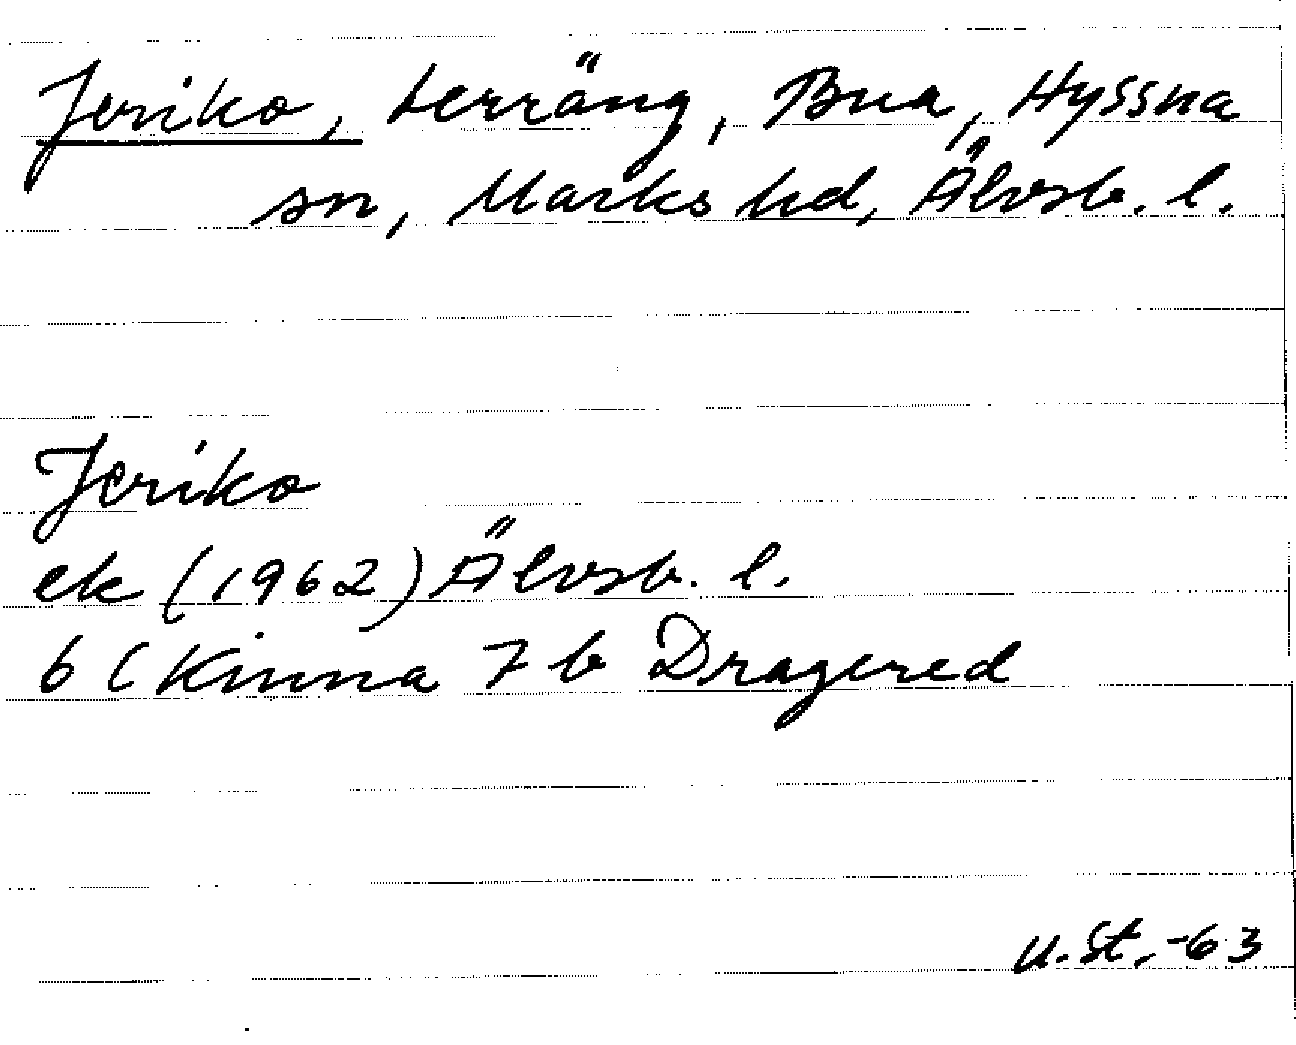 Jeriko, terräng, Bua, Hyssna
sn, Marks hd, Älvsb. l.
Jeriko
ek (1962) Älvsb. l.
6 C Kinna 7 b Dragered
U.St.-63